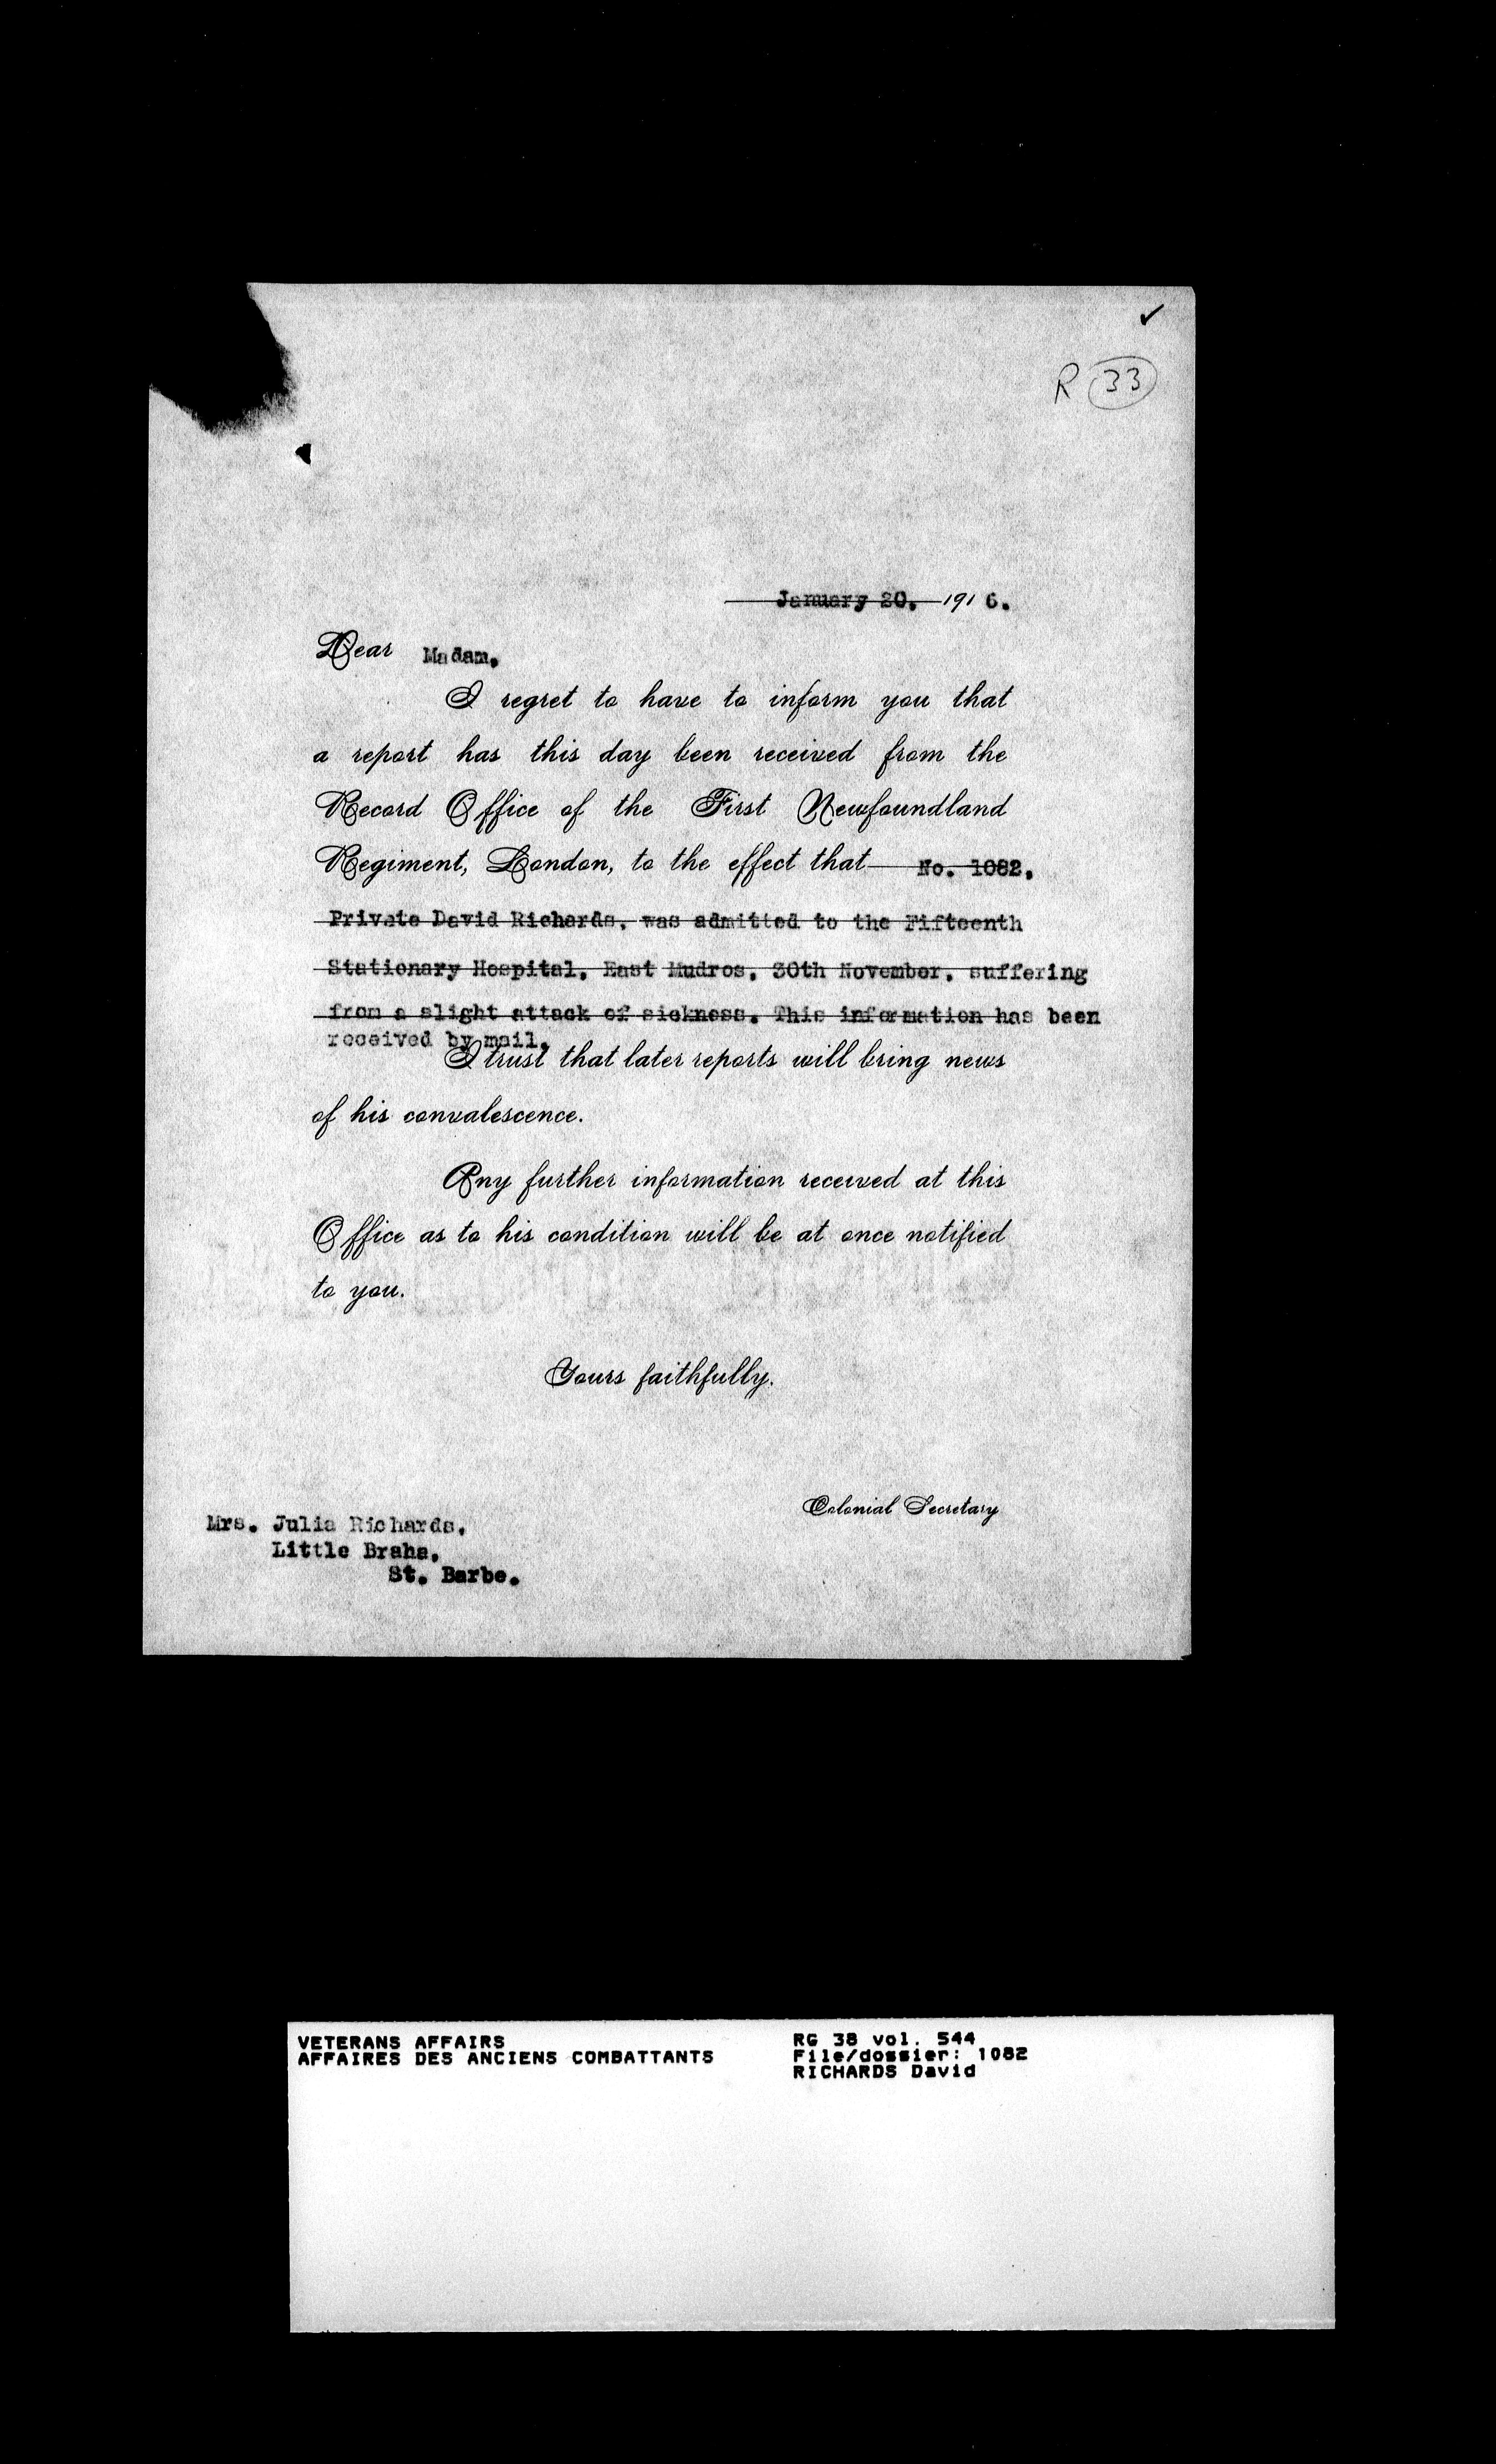 ✓
R 33
January 20, 1916.
Dear Madam,
I regret to have to inform you that
a report has this day been received from the
Record Office of the First Newfoundland
Regiment, London, to the effect that No. 1082,
Private David Richards, was admitted to the Fifteenth
Stationary Hospital, East Mudros, 30th November, suffering
from a slight attack of sickness. This information has been
received by mail.
I trust that later reports will bring news
of his convalescence.
Any further information received at this
Office as to his condition will be at once notified
to you.
Yours faithfully,
Colonial Secretary
Mrs. Julia Richards,
Little Braha,
St. Barbe.
VETERANS AFFAIRS
AFFAIRES DES ANCIENS COMBATTANTS
RG 38 vol. 544
File/dossier: 1082
RICHARDS David